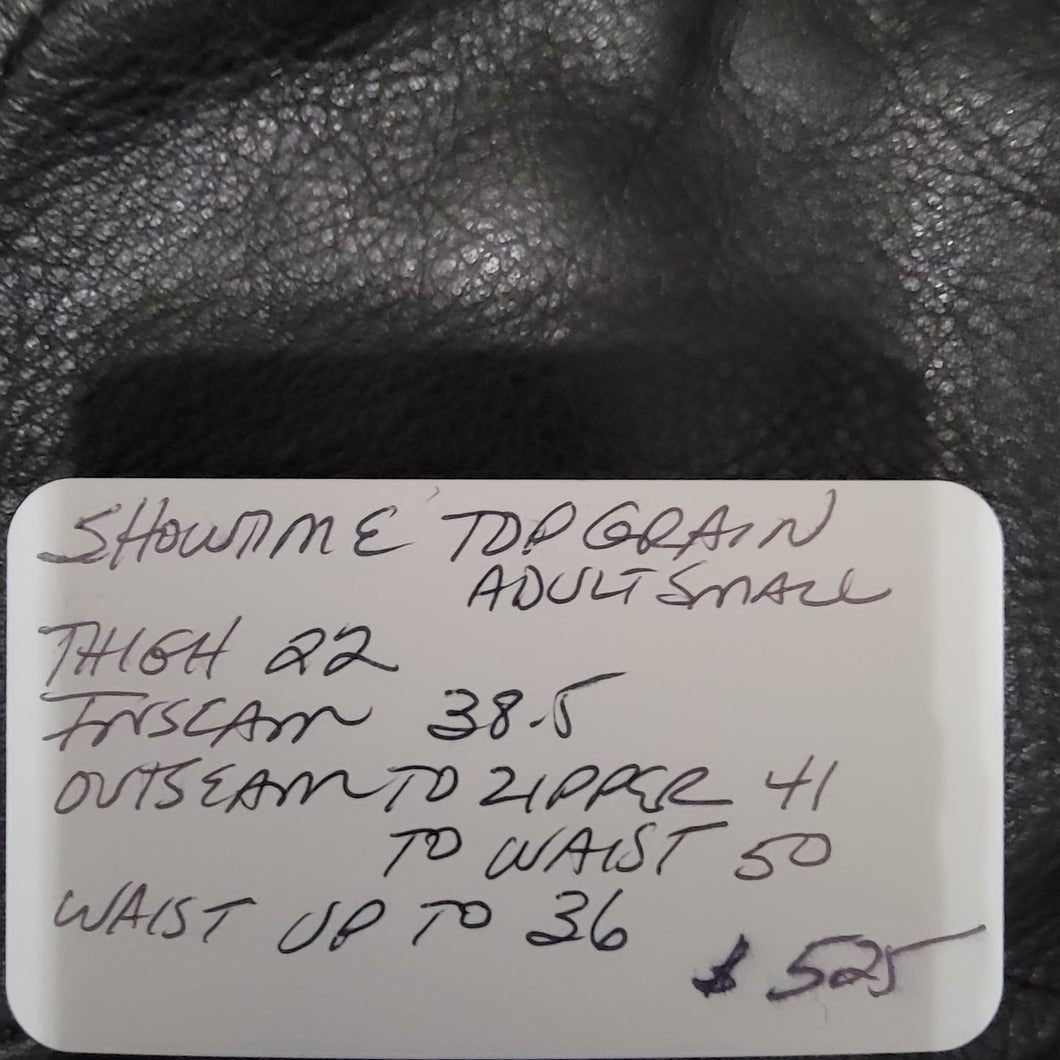 SHOWTIME TOP GRAIN
ADULT SMALL
THIGH 22
INSEAM 38.5
OUTSEAM TO ZIPPER 41
TO WAIST 50
WAIST UP TO 36
$525